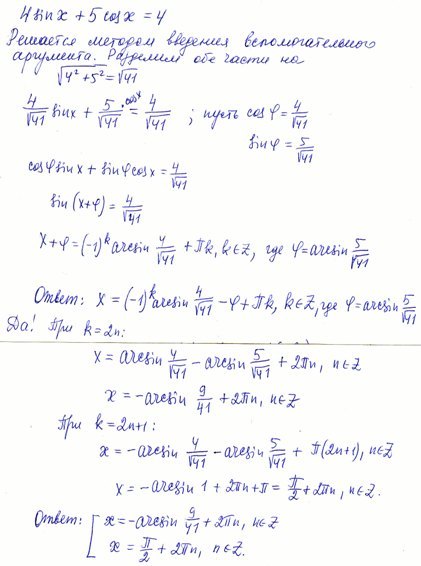 4sinx + 5cosx = 4
Решается методом введения вспомогательного
аргумента. Разделим обе части на
√(4²+5²) = √41
4/√41 sinx + 5/√41 · cosx = 4/√41 ; пусть cosφ = 4/√41
sinφ = 5/√41
cosφ sinx + sinφ cosx = 4/√41
sin(x+φ) = 4/√41
x+φ = (-1)^k arcsin 4/√41 + πk, k∈Z, где φ = arcsin 5/√41
Ответ: x = (-1)^k arcsin 4/√41 - φ + πk, k∈Z, где φ = arcsin 5/√41
Да! При k=2n:
x = arcsin 4/√41 - arcsin 5/√41 + 2πn, n∈Z
x = -arcsin 9/41 + 2πn, n∈Z
При k=2n+1:
x = -arcsin 4/√41 - arcsin 5/√41 + π(2n+1), n∈Z
x = -arcsin 1 + 2πn + π = π/2 + 2πn, n∈Z.
Ответ: [ x = -arcsin 9/41 + 2πn, n∈Z
x = π/2 + 2πn, n∈Z.